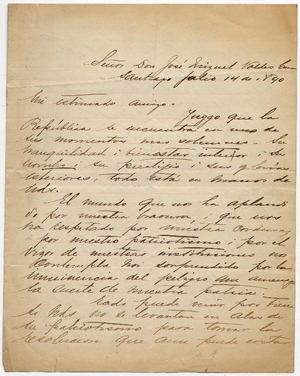 Señor Don José Miguel Valdes C.
Santiago Julio 14 de 1890
Mi estimado amigo.
Juzgo que la
República se encuentra en uno de
sus momentos mas solemnes. Su
tranquilidad i bienestar interior, su
su prestijio i sus glorias
esteriores, todo está en manos de
Uds.
El mundo que nos ha aplaudi
do por nuestra bravura, i que nos
ha respetado por nuestra cordura,
por nuestro patriotismo i por el
vigor de nuestras instituciones nos
contempla hoi sorprendido por la
inminencia del peligro que amenaza
la suerte de nuestra patria.
Todo puede
si Uds. no se levantan en alas de
su patriotismo para tomar la
resolucion que aun puede evitar